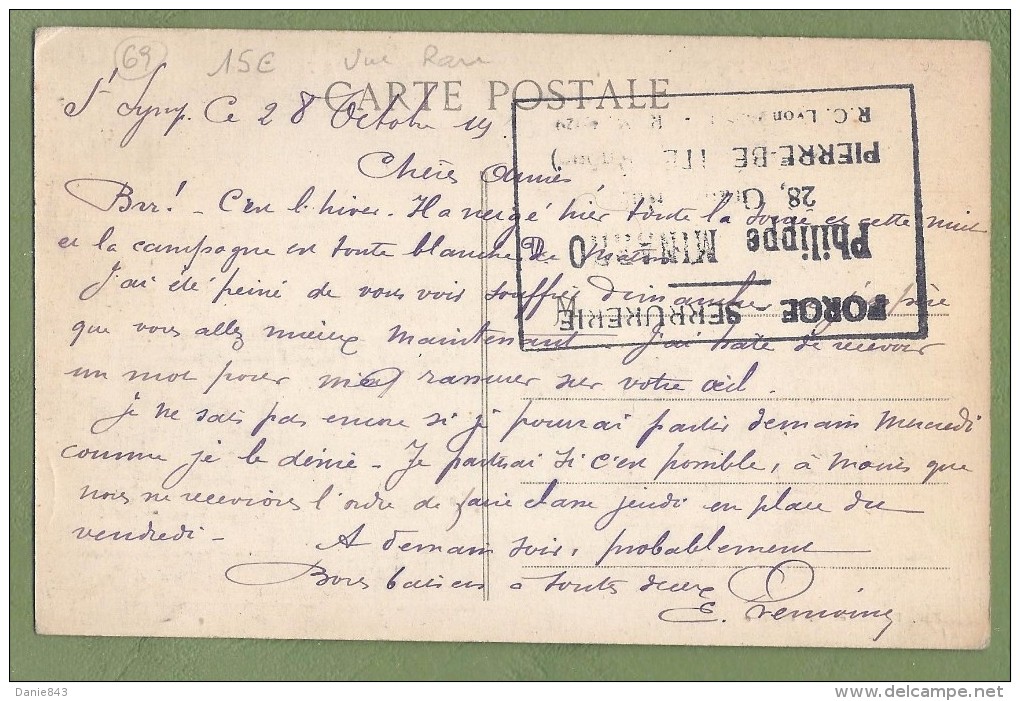 69 15€ Vue Rare
CARTE POSTALE
St Symp. Ce 28 Octobre 19
Chères Amies
Brr! - C'est l'hiver. Il a neigé hier toute la soirée et cette nuit
et la campagne est toute blanche ce matin
J'ai été peiné de vous voir souffrir dimanche - J'espère
que vous allez mieux maintenant - J'ai hâte de recevoir
un mot pour me rassurer sur votre œil.
Je ne sais pas encore si je pourrai partir demain Mercredi
comme je le désire - Je partirai si c'est possible, à moins que
nous ne recevions l'ordre de faire classe jeudi en place du
vendredi -
A demain soir, probablement
Bons baisers à toutes deux
E.
FORGE SERRURERIE
Philippe MINARRO
28,
PIERRE-BENITE
R.C. Lyon
Danie843
www.delcampe.net